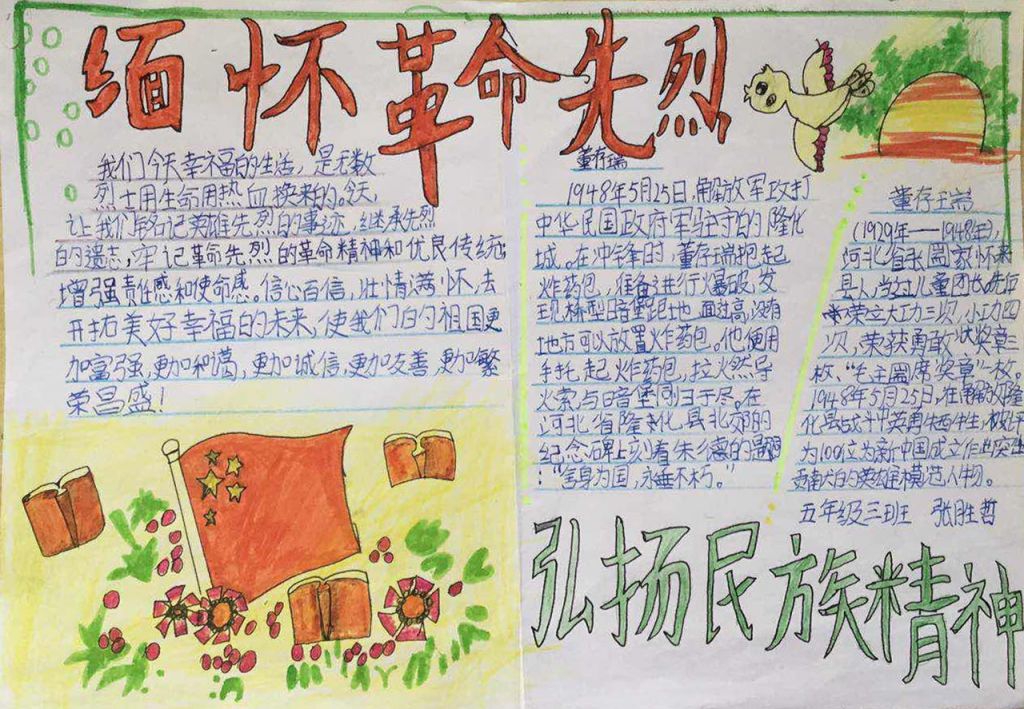 缅怀革命先烈
我们今天幸福的生活，是无数
烈士用生命用热血换来的。今天，
让我们铭记英雄先烈的事迹，继承先烈
的遗志，牢记革命先烈的革命精神和优良传统，
增强责任感和使命感。信心百倍，壮情满怀，去
开拓美好幸福的未来，使我们的祖国更
加富强，更加和谐，更加诚信，更加友善，更加繁
荣昌盛！
董存瑞
1948年5月25日，解放军攻打
中华民国政府军驻守的隆化
城。在冲锋时，董存瑞抱起
炸药包，准备进行爆破，发
现桥型暗堡距地面过高，没有
地方可以放置炸药包。他便用
手托起炸药包，拉火燃导
火索与暗堡同归于尽。在
河北省隆化县北郊的
纪念碑上刻着朱德的题词
："舍身为国，永垂不朽。"
董存瑞
(1929年——1948年)，
河北省张家口怀来
县人，当过儿童团长，先后
荣立大功三次，小功四
次，荣获勇敢状奖章三
枚，"毛主席奖章"一枚。
1948年5月25日，在解放隆
化县战斗中英勇牺牲，被评
为100位为新中国成立作出突出
贡献的英雄模范人物。
五年级三班 张胜哲
弘扬民族精神